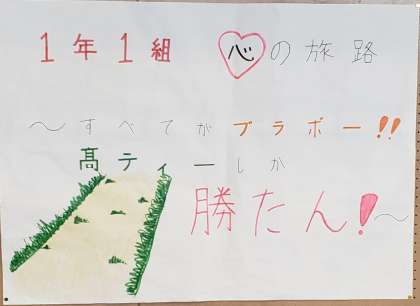 1年1組 心の旅路
～すべてがブラボー!!
髙ティーしか
勝たん!～